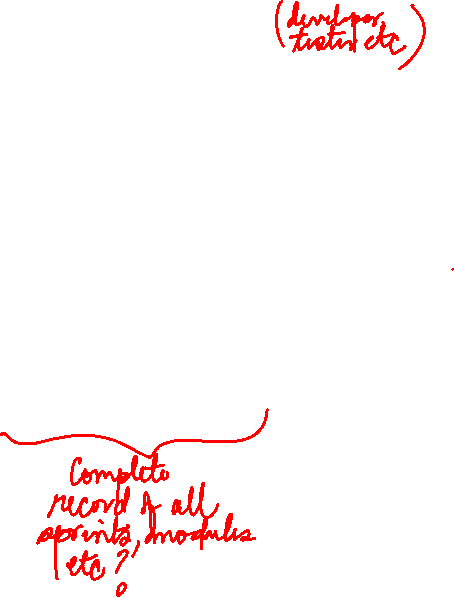 (developer
tester etc)
Complete
record of all
sprints, modules
etc?